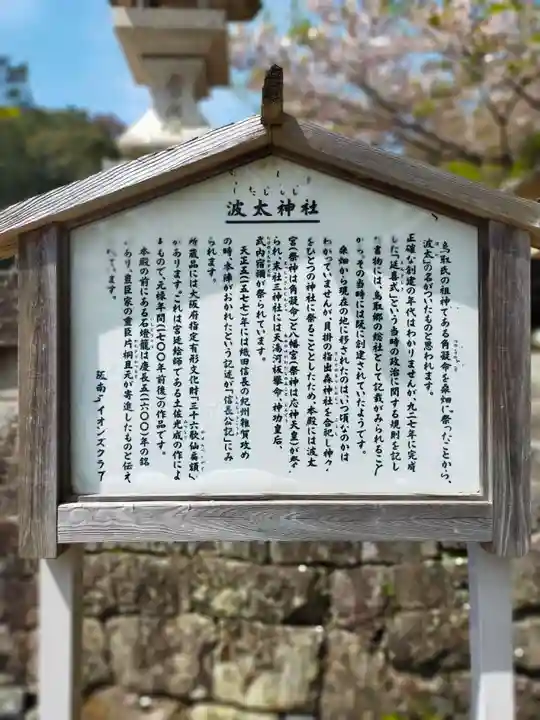 波太神社
鳥取氏の祖神である角凝命を桑畑に祭ったことから、
波太の名がついたものと思われます。
正確な創建の年代はわかりませんが、九二七年に完成
した「延喜式」という当時の政治に関する規則を記し
た書物には、鳥取郷の総社として記載がみられること
から、その当時には既に創建されていたようです。
桑畑から現在の地に移されたのは、いつ頃なのかは
わかっていませんが、貝掛の指出森神社を合祀し、神々
をひとつの神社に祭ることとしたため、本殿には波太
宮(祭神は角凝命)と八幡宮(祭神は応神天皇)が並べ
られ、末社三神社には天湯河板挙命、神功皇后、
武内宿禰が祭られています。
天正五(一五七七)年には織田信長の紀州雑賀攻め
の時、本陣がおかれたという記述が「信長公記」にみ
られます。
所蔵品には大阪府指定有形文化財「三十六歌仙扁額」
があります。これは宮廷絵師である土佐光成の作によ
るもので、元禄年間(一七〇〇年前後)の作品です。
本殿の前にある石燈籠は慶長五(一六〇〇)年の銘
があり、豊臣家の重臣片桐且元が寄進したものと伝え
られています。
阪南ライオンズクラブ